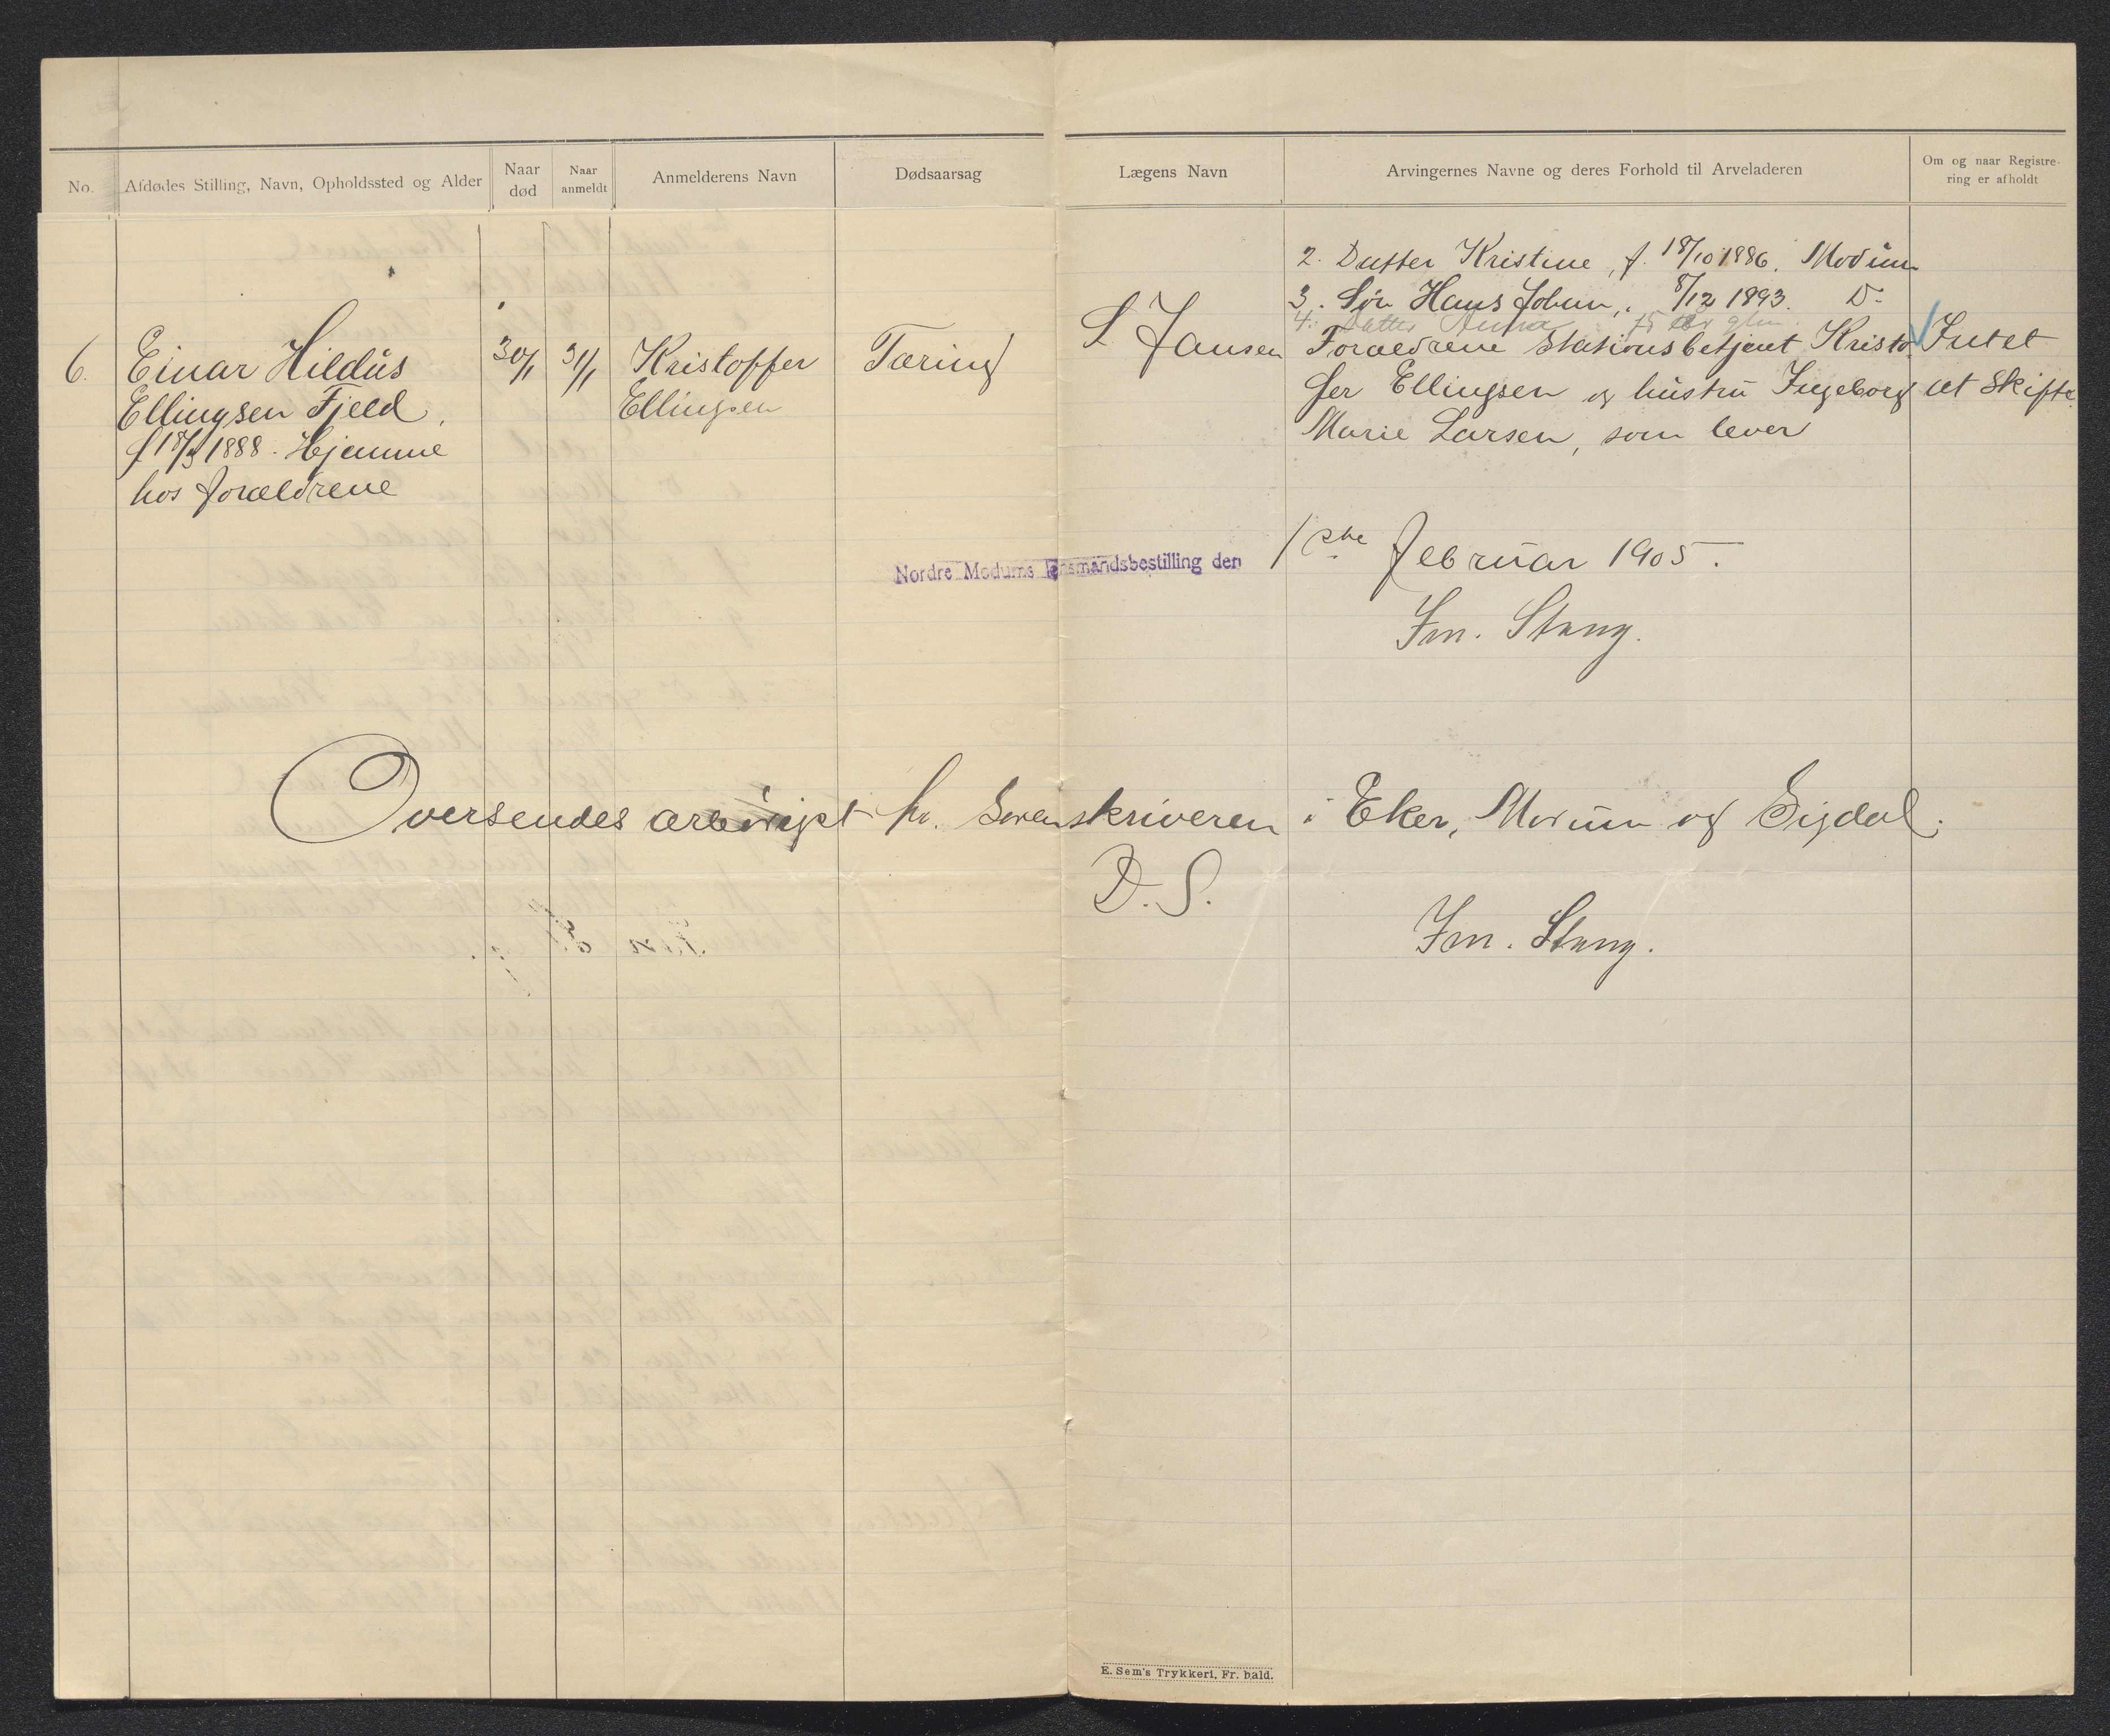 No.
Afdødes Stilling, Navn, Opholdssted og Alder
Naar død
Naar anmeldt
Anmelderens Navn
Dødsaarsag
Lægens Navn
Arvingernes Navne og deres Forhold til Arveladeren
Om og naar Registre-
ring er afholdt
2. Datter Kristine, f. 18/10 1886. Modum
3. Søn Hans Johan, „ 8/12 1893. Do
4. Datter Anna 15 aar glm.
6.
Einar Hildus
Ellingsen Fjeld,
f 18/3 1888. Hjemme
hos forældrene
30/1
31/1
Kristoffer
Ellingsen
Tæring
L Jansen
Forældrene Stationsbetjent Kristof
fer Ellingsen og hustru Ingeborg
Marie Larsen, som lever
Intet
at skifte.
Nordre Modums lensmandsbestilling den 1ste februar 1905.
Fm. Stang.
Oversendes ærbødigst hr. Sorenskriveren i Eker, Modum og Sigdal.
D. S.
Fm. Stang.
E. Sem's Trykkeri, Fr. hald.